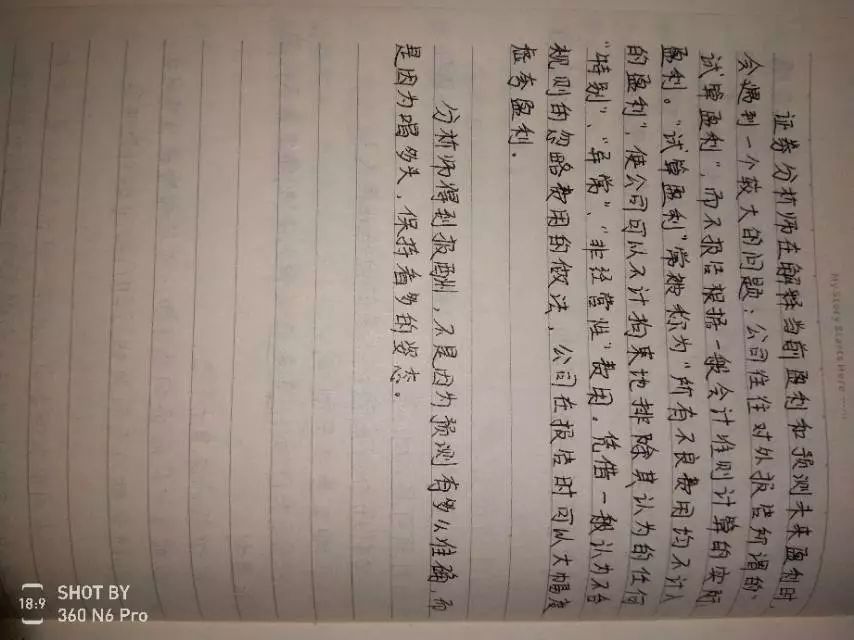 My Story Starts Here
证券分析师在解释当前盈利和预测未来盈利时,
会遇到一个较大的问题:公司往往对外报告所谓的“
试算盈利”,而不报告根据一般会计准则计算的实际
盈利。“试算盈利”常被称为“所有不良费用均不计入
的盈利”,使公司可以不计拘束地排除其认为的任何
“特别”、“异常”、“非经营性”费用。凭借一般认为不合
规则的忽略费用的做法,公司在报告时可以大幅度
抬高盈利.
分析师得到报酬,不是因为预测有多么准确,而
是因为唱多头,保持看多的姿态。
18:9
SHOT BY
360 N6 Pro